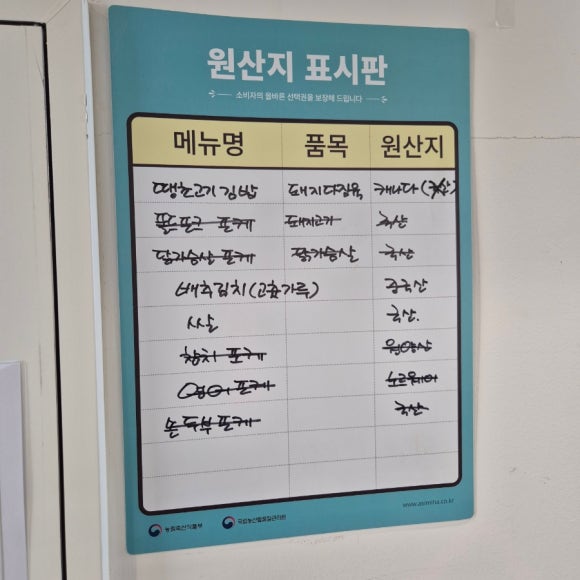 원산지 표시판
소비자의 올바른 선택권을 보장해 드립니다
메뉴명 품목 원산지
땡초고기김밥 돼지다짐육 캐나다 (국산)
풀드포크 포케 돼지고기 국산
닭가슴살 포케 닭가슴살 국산
배추김치(고춧가루) 중국산
쌀 국산.
참치 포케 원양산
연어 포케 노르웨이
손두부포케 국산
www.asimiha.co.kr
농림축산식품부 국립농산물품질관리원